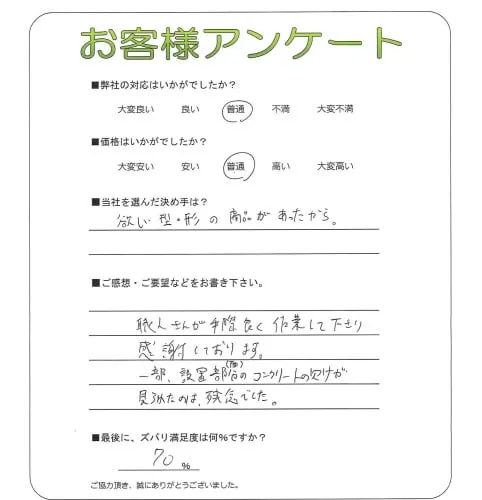 お客様アンケート
■弊社の対応はいかがでしたか?
大変良い 良い 普通 不満 大変不満
■価格はいかがでしたか?
大変安い 安い 普通 高い 大変高い
■当社を選んだ決め手は?
欲しい型・形の商品があったから。
■ご感想・ご要望などをお書き下さい。
職人さんが手際良く作業して下さり
感謝しております。
一部、設置部のコンクリートの欠けが
見られたのは、残念でした。
■最後に、ズバリ満足度は何%ですか?
70 %
ご協力頂き、誠にありがとうございました。